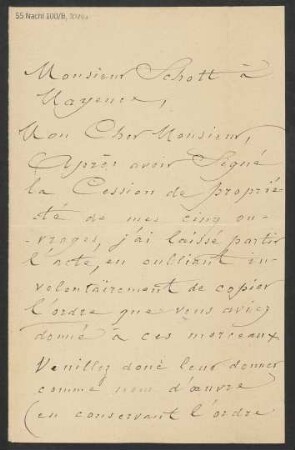 55 Nachl 100/B,
Monsieur Schott à
Mayence,
Mon Cher Monsieur,
Après avoir Signé
la Cession de proprié-
té de mes cinq ou-
-vrages, j'ai laissé partir
l'acte, en oubliant in-
volontairement de copier
l'ordre que vous aviez
donné à ces morceaux
Veuillez donc leur donner
comme nom d'œuvre
(en conservant l'ordre